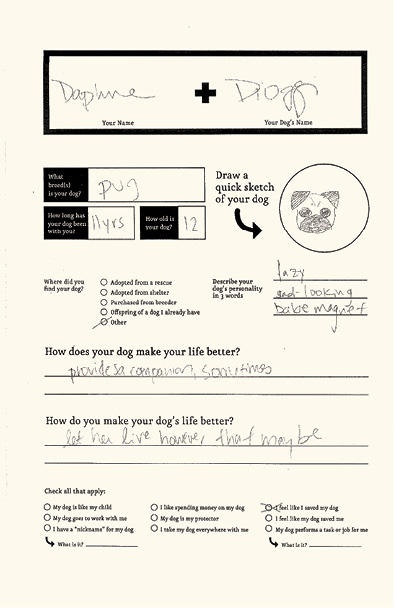 Daphne + Diogg
Your Name Your Dog's Name
What breed(s) is your dog? pug
Draw a quick sketch of your dog
How long has your dog been with you? 11yrs How old is your dog? 12
Where did you find your dog?
Adopted from a rescue
Adopted from shelter
Purchased from breeder
Offspring of a dog I already have
Other
Describe your dog's personality in 3 words
lazy
sad-looking
babe magnet
How does your dog make your life better?
provides a companion, sometimes
How do you make your dog's life better?
let her live however that may be
Check all that apply:
My dog is like my child
My dog goes to work with me
I have a "nickname" for my dog
What is it?
I like spending money on my dog
My dog is my protector
I take my dog everywhere with me
I feel like I saved my dog
I feel like my dog saved me
My dog performs a task or job for me
What is it?